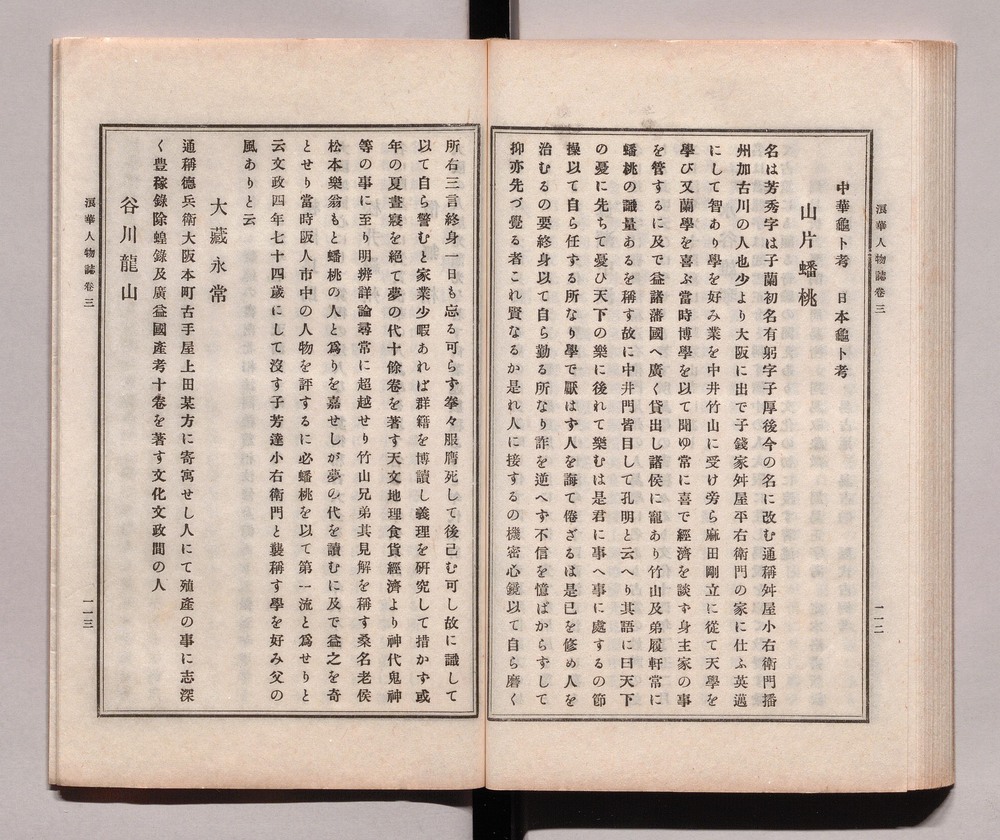 浪華人物誌卷三
一一二
中華龜卜考　日本龜卜考
山片蟠桃
名は芳秀字は子蘭初名有躬字子厚後今の名に改む通稱舛屋小右衛門播
州加古川の人也少より大阪に出で子錢家舛屋平右衛門の家に仕ふ英邁
にして智あり學を好み業を中井竹山に受け旁ら麻田剛立に從て天學を
學び又蘭學を喜ぶ當時博學を以て聞ゆ常に喜で經濟を談ず身主家の事
を管するに及で益諸藩國へ廣く貸出し諸侯に寵あり竹山及弟履軒常に
蟠桃の識量あるを稱す故に中井門皆目して孔明と云へり其語に曰天下
の憂に先ちて憂ひ天下の樂に後れて樂むは是君に事へ事に處するの節
操以て自ら任する所なり學で厭はず人を誨て倦ざるは是已を修め人を
治むるの要終身以て自ら勤る所なり詐を逆へず不信を憶ばからずして
抑亦先づ覺る者これ賢なるか是れ人に接するの機密心鏡以て自ら磨く
所右三言終身一日も忘る可らず拳々服膺死して後已む可し故に識して
以て自ら警むと家業少暇あれば群籍を博讀し義理を研究して措かず或
年の夏晝寢を絕て夢の代十餘卷を著す天文地理食貨經濟より神代鬼神
等の事に至り明辨詳論尋常に超越せり竹山兄弟其見解を稱す桑名老侯
松本樂翁もと蟠桃の人と爲りを嘉せしが夢の代を讀むに及で益之を奇
とせり當時阪人市中の人物を評するに必蟠桃を以て第一流と爲せりと
云文政四年七十四歲にして沒す子芳達小右衛門と襲稱す學を好み父の
風ありと云
大藏永常
通稱德兵衛大阪本町古手屋上田某方に寄寓せし人にて殖產の事に志深
く豊稼錄除蝗錄及廣益國產考十卷を著す文化文政間の人
谷川龍山
浪華人物誌卷三
一一三